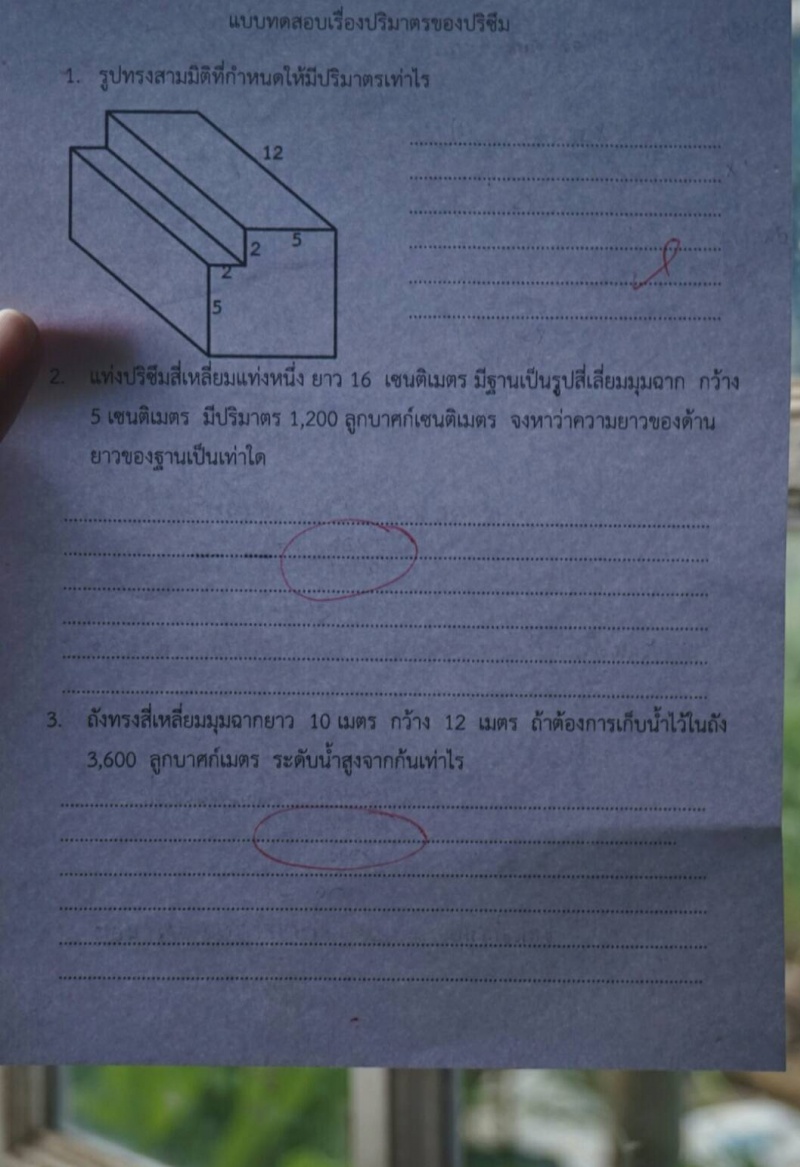 แบบทดสอบเรื่องปริมาตรของปริซึม
1. รูปทรงสามมิติที่กำหนดให้มีปริมาตรเท่าไร
12
5
2
2
5
2. แท่งปริซึมสี่เหลี่ยมแท่งหนึ่ง ยาว 16 เซนติเมตร มีฐานเป็นรูปสี่เลี่ยมมุมฉาก กว้าง
5 เซนติเมตร มีปริมาตร 1,200 ลูกบาศก์เซนติเมตร จงหาว่าความยาวของด้าน
ยาวของฐานเป็นเท่าใด
3. ถังทรงสี่เหลี่ยมมุมฉากยาว 10 เมตร กว้าง 12 เมตร ถ้าต้องการเก็บน้ำไว้ในถัง
3,600 ลูกบาศก์เมตร ระดับน้ำสูงจากก้นเท่าไร